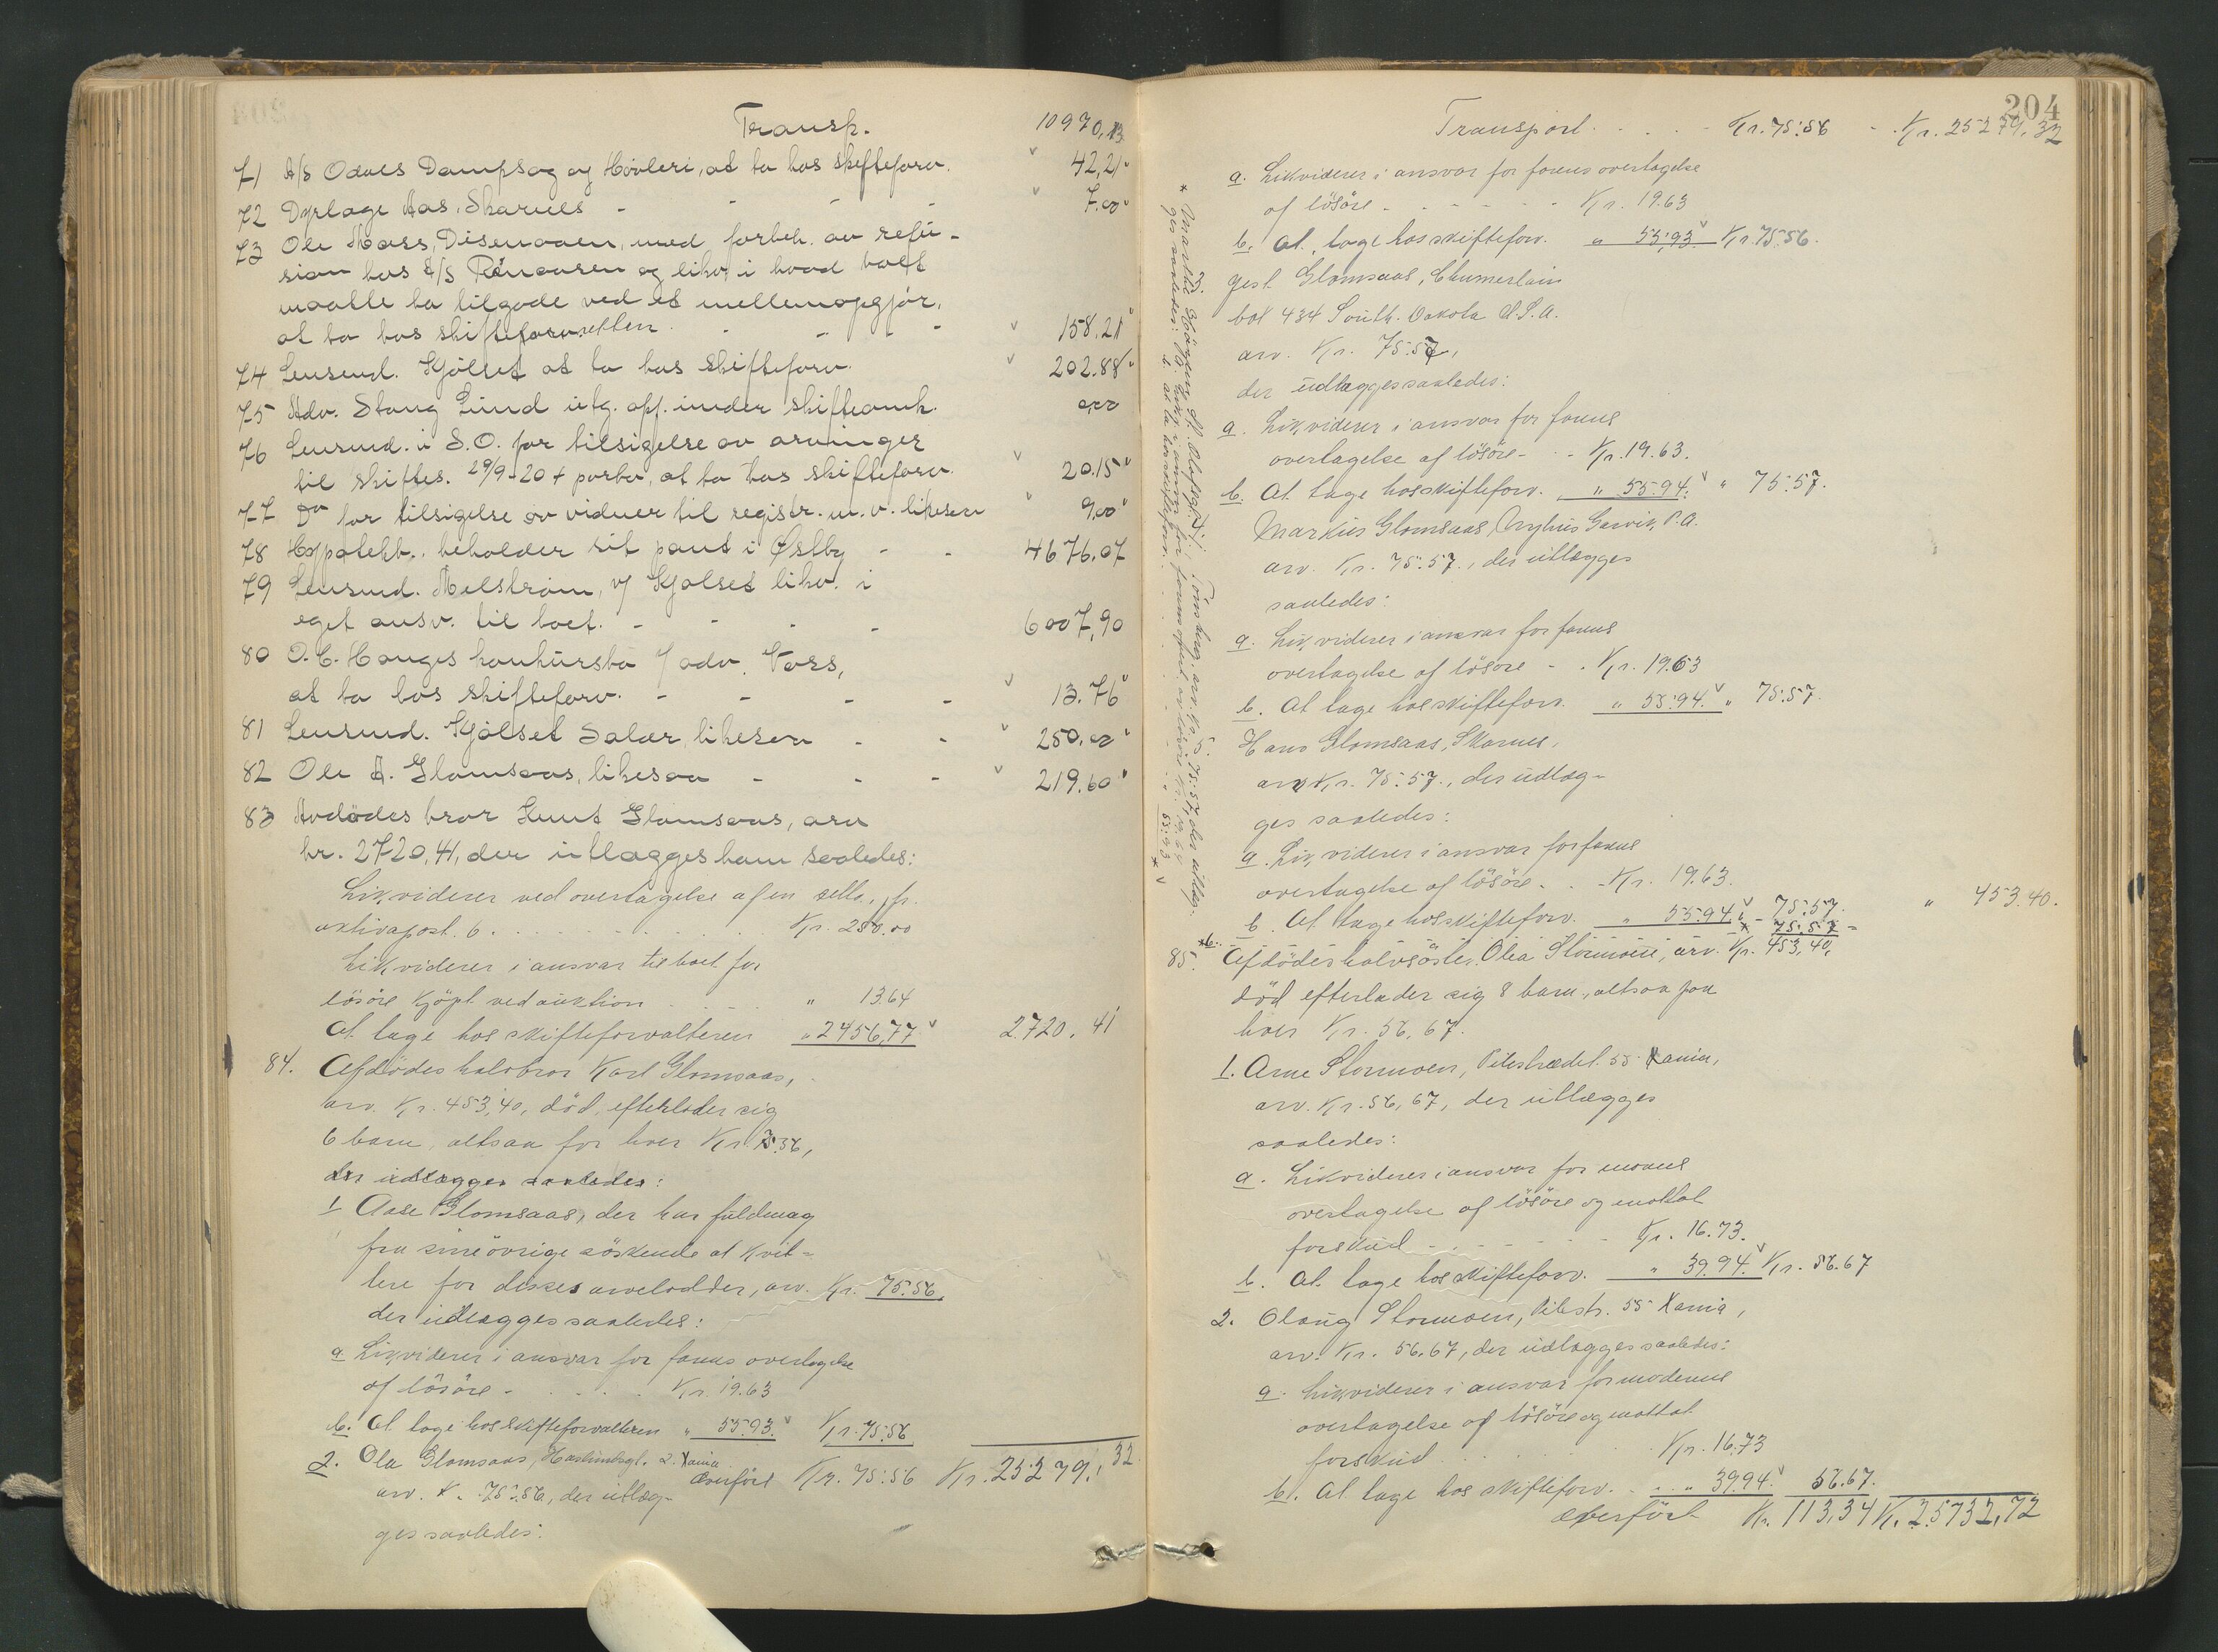 Transp. 10970,13
71 A/S Odals Dampsag og Høvleri, at ta hos skifteforv. 42,21
72 Dyrlæge Aas, Skarnes - - - - 7.00
73 Ole Moss, Disenaaen, med forbeh. av refu-
sion hos A/S og likv. i hvad boet
maatte ha tilgode ved et mellemopgjør,
at ta hos skifteforvalteren. - - - 158.21
74 Lensmd. Kjølset at ta hos skifteforv. 202.88
75 Adv. Stang Lund utg. opf. under skifteomk. 0,00
76 Lensmd. i S.O. for tilsigelse av arvinger
til skiftes. 29/9-20 + porto, at ta hos skifteforv. 20.15
77 Do for tilsigelse av vidner til registr. m.v. likesaa 9,00
78 Hypotekb., beholder sit pant i Østby - - 4676.07
79 Lensmd. Melstrøm, v/ Kjølset likv. i
eget ansv. til boet. - - - - 6007,90
80 O.C. Hauges konkursbo v/ adv. Vors,
at ta hos skifteforv. - - - - 13.76
81 Lensmd. Kjølset Salær, likesaa - - 250.00
82 Ole A. Glomsaas, likesaa - - - 219.60
83 Avdødes bror Knut Glomsaas, arv
kr. 2720,41, der utlægges ham saaledes:
Likviderer ved overtagelse af en sells., jfr.
aktivapost. 6 . . . . . Kr. 250.00
Likviderer i ansvar til boet for
løsøre kjøpt ved auktion - - - " 13.64
At tage hos skifteforvalteren " 2456,77 2720.41
84. Afdødes halvbror Karl Glomsaas,
arv. Kr. 453,40, død, efterlader sig
6 barn, altsaa for hver Kr. 75.56,
der udlægges saaledes:
1 Aase Glomsaas, der har fuldmag
fra sine øvrige søskende at kvit-
tere for disses arvelodder, arv. Kr. 75.56,
der utlægges saaledes:
a Likviderer i ansvar for farens overtagelse
af løsøre - . . . . Kr. 19.63
b. At tage hos skifteforvalteren " 55.93. Kr. 75.56
2. Ola Glomsaas, 2. Xania
arv. Kr. 75.56, der utlæg-
ges saaledes:
Overført Kr. 75.56 Kr. 25279,32

204
Transport . . . . Kr. 75.56 - Kr. 25279,32
a. Likviderer i ansvar for farens overtagelse
af løsøre - - - - - Kr. 19.63
b. At tage hos skifteforv. " 55.93 Kr. 75.56.
3. Gest Glomsaas, Chumerlain
box 434 South. Dakota U.S.A.
arv. Kr. 75.57,
der udlægges saaledes:
a. Likviderer i ansvar for farens
overtagelse af løsøre - - Kr. 19.63.
b. At tage hos skifteforv. " 55.94. " 75.57.
Markus Glomsaas, Nyhus P.A.
arv. Kr. 75.57., der utlægges
saaledes:
a. Likviderer i ansvar for farens
overtagelse af løsøre - - Kr. 19.63
b. At tage hos skifteforv. " 55.94. " 75.57.
Hans Glomsaas, Skarnes,
arv Kr. 75.57., der udlæg-
ges saaledes:
a. Likviderer i ansvar for farens
overtagelse af løsøre. . - Kr. 19.63.
b. At tage hos skifteforv. " 55.94. - 75.57. " 453.40.
* 75.57 =
*6.
85. Afdødes halvsøster Olea Stormoen, arv. Kr. 453,40,
død efterlader sig 8 barn, altsaa paa
hver Kr. 56.67.
1. Arne Stormoen, Pilestrædet 55 Xania,
arv. Kr. 56,67, der utlægges
saaledes:
a. Likviderer i ansvar for morens
overtagelse af løsøre og mottat
forskud - - - - - Kr. 16.73.
b. At tage hos skifteforv. " 39.94. Kr. 56.67
2. Olaug Stormoen, Pilestr. 55 Xania,
arv. Kr. 56.67, der udlægges saaledes:
a. Likviderer i ansvar for moderens
overtagelse af løsøre og mottat
forskud . . . . Kr. 16.73
b. At tage hos skifteforv. - . . " 39.94. 56.67.
Overført Kr. 113,34 Kr. 25732,72
* Martha Tønsberg, arv. Kr. 75.57, der utlæg-
ges saaledes: a. likv. i ansvar for farens overt. av løsøre Kr. 19.64
b. at ta hos skifteforv. . . . . . " 55.93 *